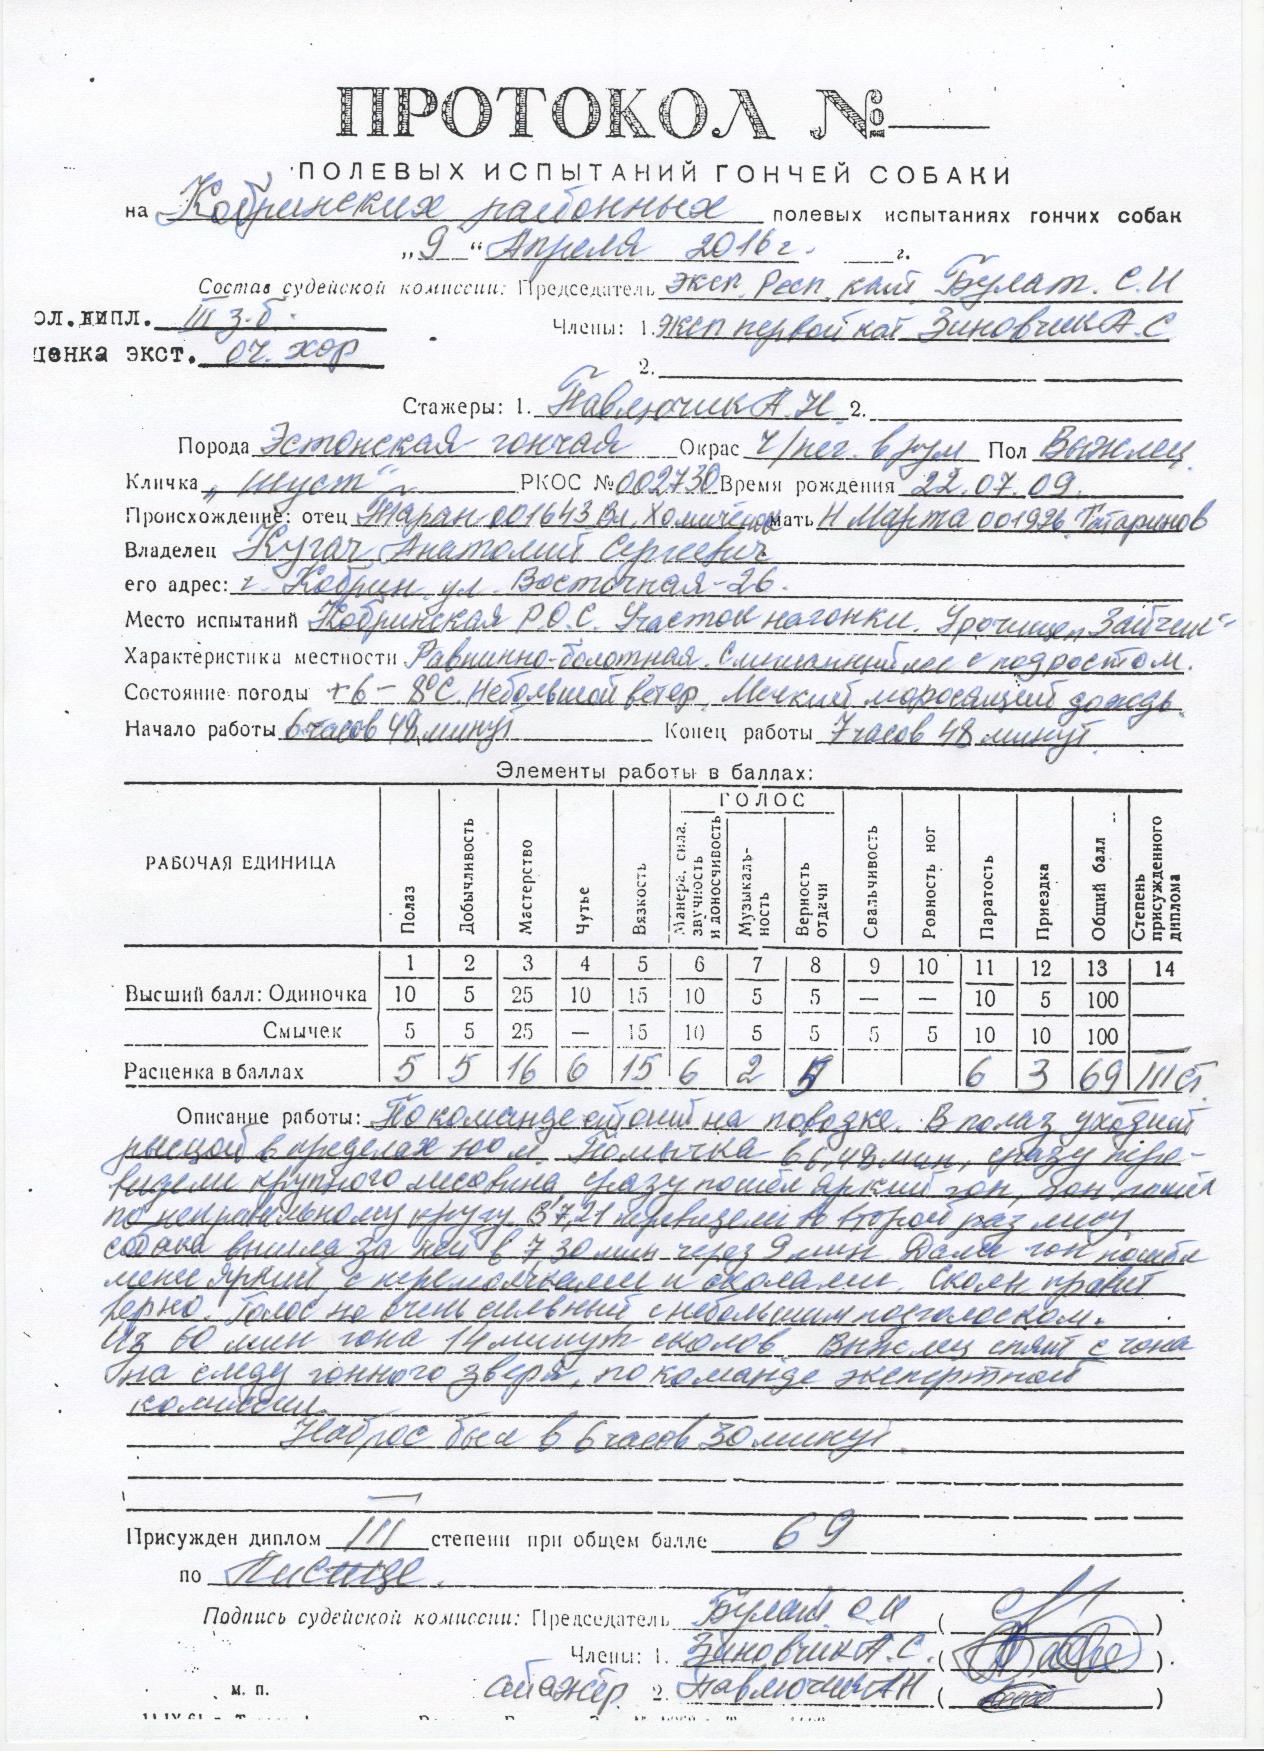 ПРОТОКОЛ №
ПОЛЕВЫХ ИСПЫТАНИЙ ГОНЧЕЙ СОБАКИ
на Кобринских районных полевых испытаниях гончих собак
„9“ Апреля 2016 г. г.
Состав судейской комиссии: Председатель Эксп. Респ. кат. Булат. С. И
ол. дипл. III з.б. Члены: 1. Эксп первой кат Зиновчик А. С
ценка экст. оч. хор
2.
Стажеры: 1. Павлючик А. Н. 2.
Порода Эстонская гончая Окрас ч/пег. в рум Пол Выжлец
Кличка „Шуст“ РКОС № 002730 Время рождения 22.07.09.
Происхождение: отец Таран 001643 Вл. Хомичёнок мать Н Марта 001926 Татаринов
Владелец Кугач Анатолий Сергеевич
его адрес: г. Кобрин ул. Восточная-26.
Место испытаний Кобринская Р.О.С. Участок нагонки. Урочище „Зайчик“
Характеристика местности Равнинно-болотная. Смешанный лес с подростом.
Состояние погоды +6 – 8°С. Небольшой ветер, Мелкий моросящий дождь.
Начало работы 6 часов 48 минут Конец работы 7 часов 48 минут.
Элементы работы в баллах:
РАБОЧАЯ ЕДИНИЦА Полаз Добычливость Мастерство Чутье Вязкость ГОЛОС Манера, сила, звучность и доносчивость Музыкальность Верность отдачи Свальчивость Ровность ног Паратость Приездка Общий балл Степень присужденного диплома
1 2 3 4 5 6 7 8 9 10 11 12 13 14
Высший балл: Одиночка 10 5 25 10 15 10 5 5 — — 10 5 100
Смычек 5 5 25 — 15 10 5 5 5 5 10 10 100
Расценка в баллах 5 5 16 6 15 6 2 5 6 3 69 III ст.
Описание работы: По команде стоит на поводке. В полаз уходит
рысцой в пределах 100 м. Помычка в 6,48 мин, сразу пере-
видели крупного лисовина, сразу пошёл яркий гон, гон пошёл
по неправильному кругу. В 7,21 перевидели во второй раз лису,
собака вышла за ней в 7,30 мин через 9 мин Далее гон пошёл
менее яркий, с перемолчками и сколами. Скол правит
верно. Голос не очень сильный с небольшим подголоском.
Из 60 мин гона 14 минут сколов. Выжлец снят с гона
на следу гонного зверя, по команде экспертной
комиссии.
Наброс был в 6 часов 30 минут.
Присужден диплом III степени при общем балле 69
по Лисице.
Подпись судейской комиссии: Председатель Булат С. И ( )
Члены: 1. Зиновчик А. С. ( ).
м. п. стажёр 2. Павлючик А Н ( )